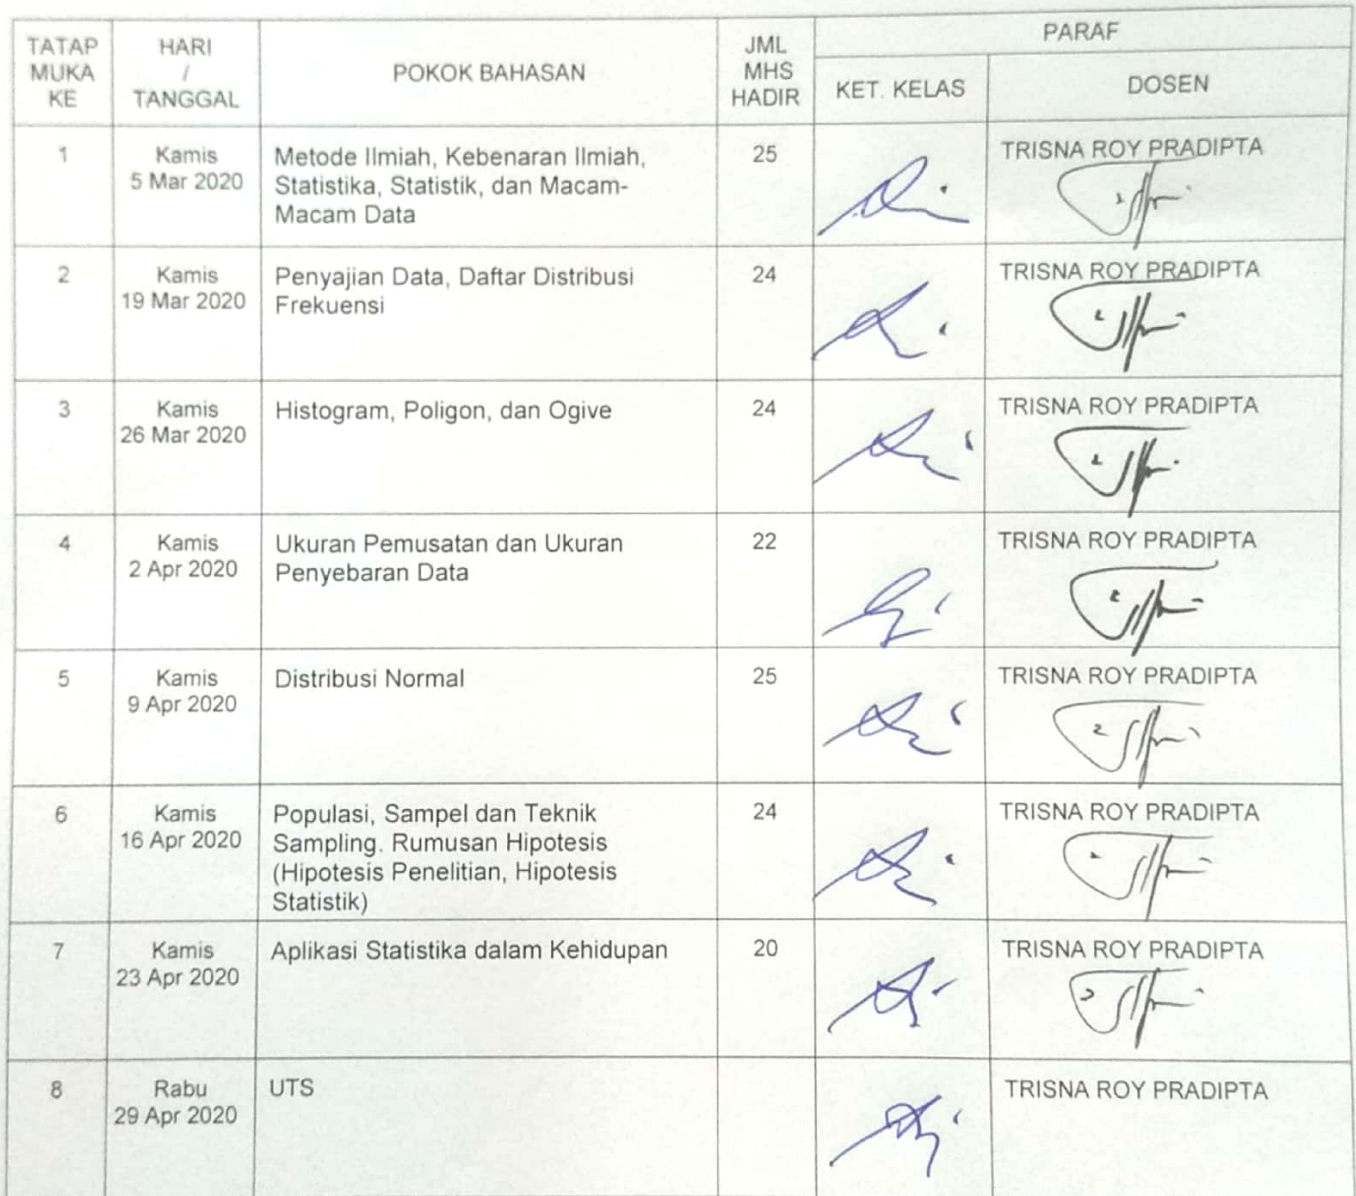 TATAP MUKA KE
HARI / TANGGAL
POKOK BAHASAN
JML MHS HADIR
PARAF
KET. KELAS
DOSEN
1
Kamis
5 Mar 2020
Metode Ilmiah, Kebenaran Ilmiah,
Statistika, Statistik, dan Macam-
Macam Data
25
TRISNA ROY PRADIPTA
2
Kamis
19 Mar 2020
Penyajian Data, Daftar Distribusi
Frekuensi
24
TRISNA ROY PRADIPTA
3
Kamis
26 Mar 2020
Histogram, Poligon, dan Ogive
24
TRISNA ROY PRADIPTA
4
Kamis
2 Apr 2020
Ukuran Pemusatan dan Ukuran
Penyebaran Data
22
TRISNA ROY PRADIPTA
5
Kamis
9 Apr 2020
Distribusi Normal
25
TRISNA ROY PRADIPTA
6
Kamis
16 Apr 2020
Populasi, Sampel dan Teknik
Sampling. Rumusan Hipotesis
(Hipotesis Penelitian, Hipotesis
Statistik)
24
TRISNA ROY PRADIPTA
7
Kamis
23 Apr 2020
Aplikasi Statistika dalam Kehidupan
20
TRISNA ROY PRADIPTA
8
Rabu
29 Apr 2020
UTS
TRISNA ROY PRADIPTA